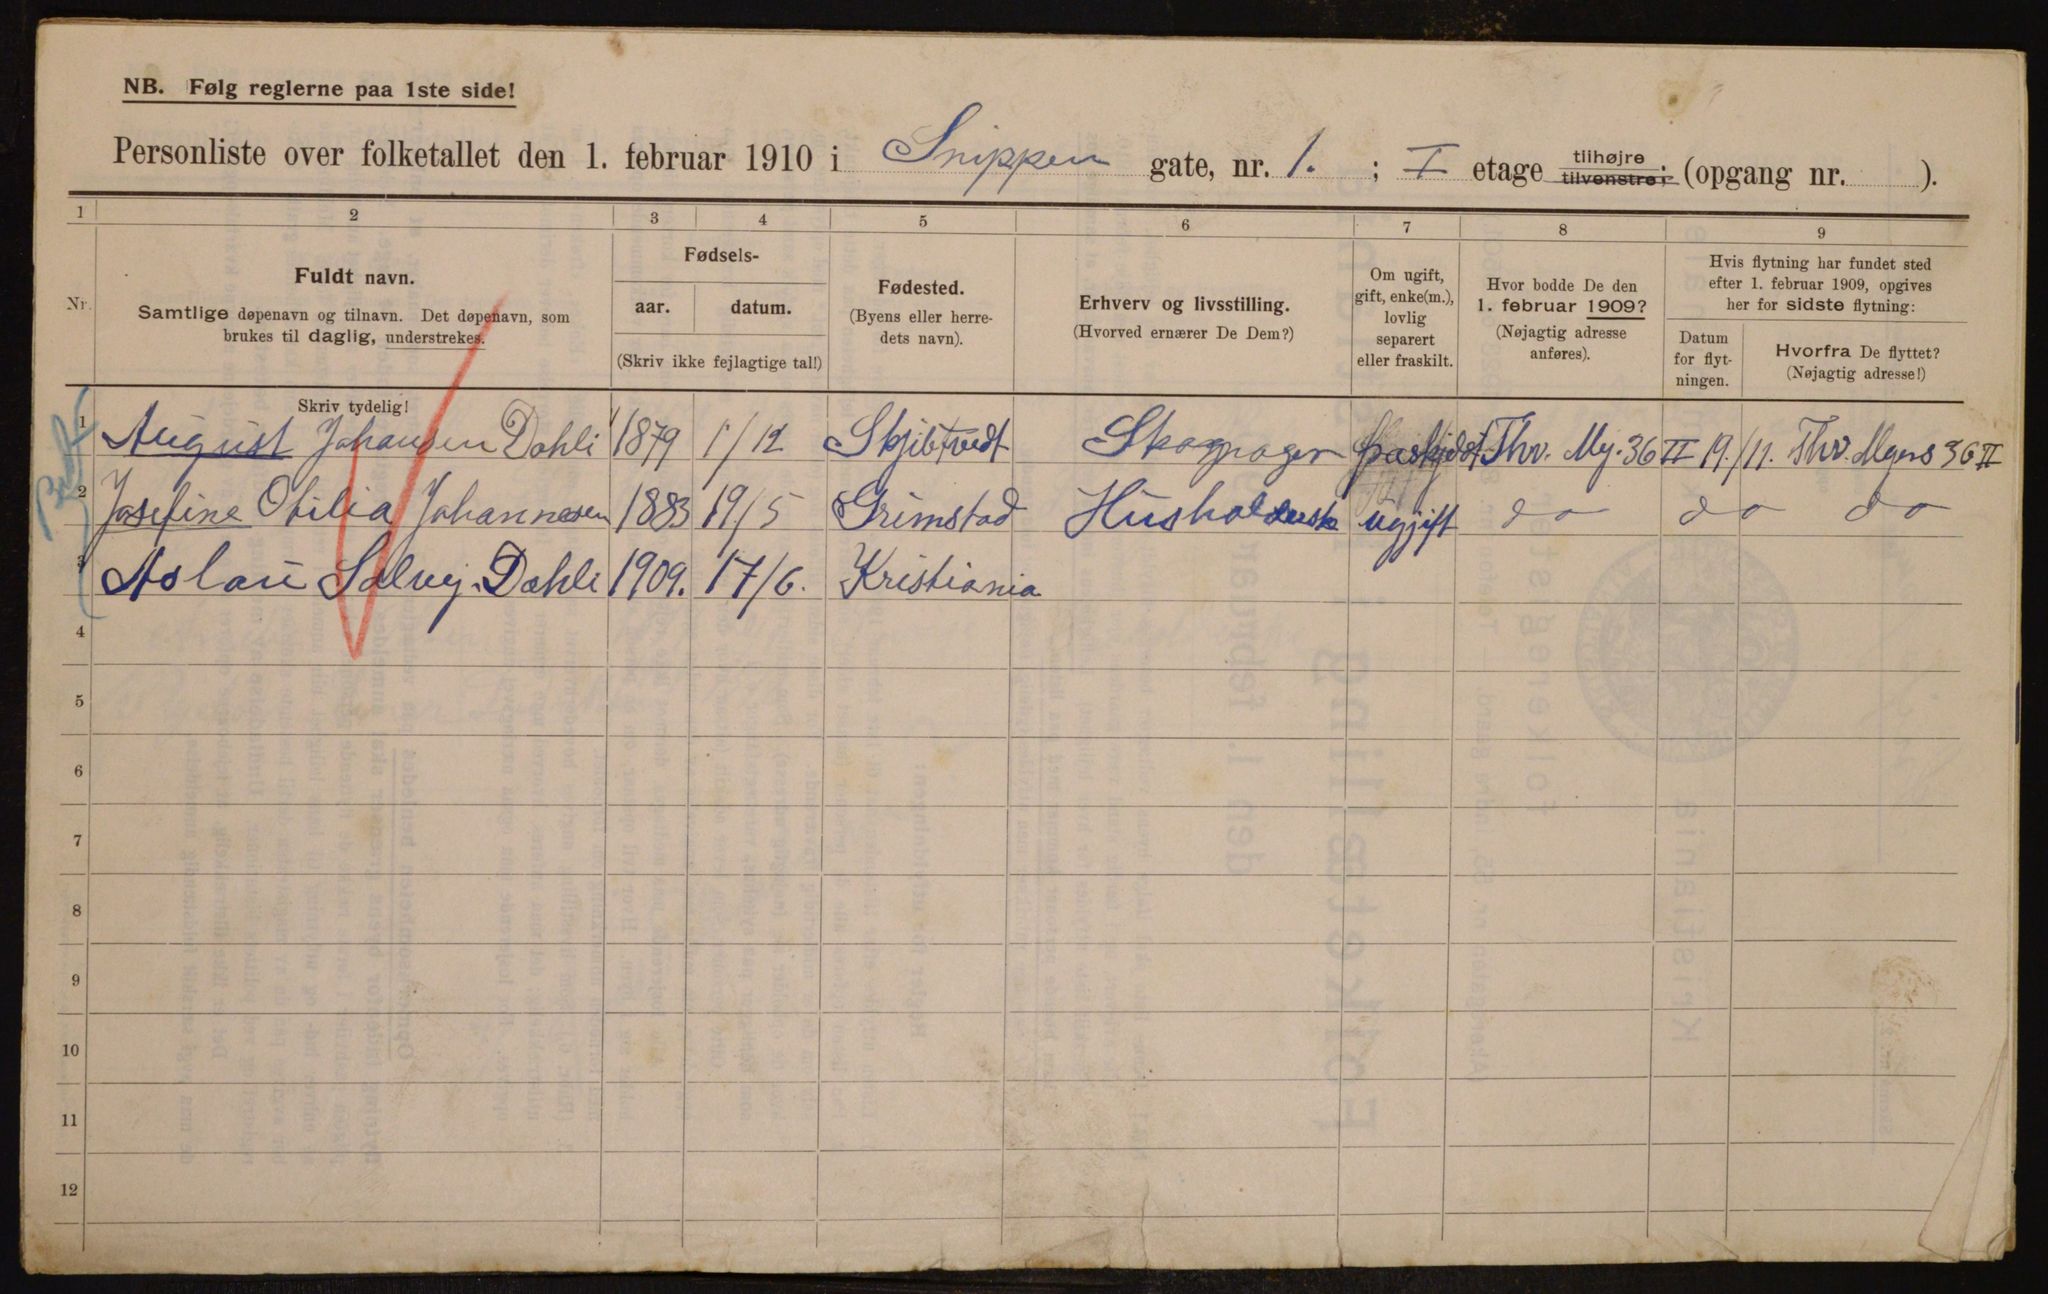 NB. Følg reglerne paa 1ste side!
Personliste over folketallet den 1. februar 1910 i Snippen gate, nr. 1. ; I etage tilhøjre tilvenstre; (opgang nr. ).
1 2 3 4 5 6 7 8 9
Nr.
Fuldt navn.
Samtlige døpenavn og tilnavn. Det døpenavn, som
brukes til daglig, understrekes.
Fødsels-
aar. datum.
(Skriv ikke fejlagtige tal!)
Fødested.
(Byens eller herre-
dets navn).
Erhverv og livsstilling.
(Hvorved ernærer De Dem?)
Om ugift,
gift, enke(m.),
lovlig
separert
eller fraskilt.
Hvor bodde De den
1. februar 1909?
(Nøjagtig adresse
anføres).
Hvis flytning har fundet sted
efter 1. februar 1909, opgives
her for sidste flytning:
Datum
for flyt-
ningen.
Hvorfra De flyttet?
(Nøjagtig adresse!)
Skriv tydelig!
1 August Johansen Dahli 1879 1/12 Skjibtvedt fraskjidt Thv. Mej. 36 II 19./11. Thv. Myers 36 II
2 Josefine Otilia Johannesen 1883 19/5 Grimstad ugjift do do do
3 Aslau Solvej. Dahli 1909. 17/6. Kristiania
4
5
6
7
8
9
10
11
12